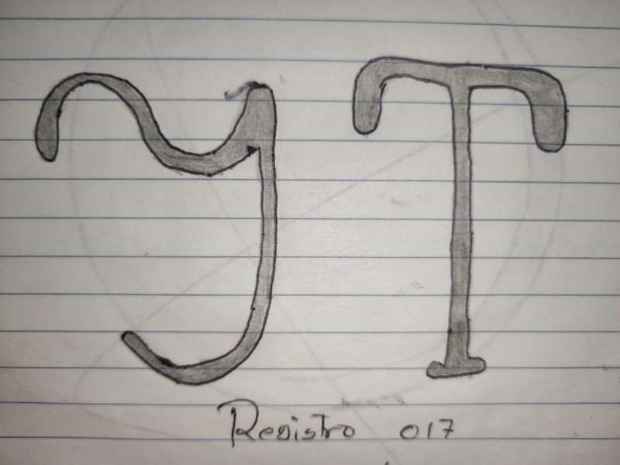 YT
Registro 017